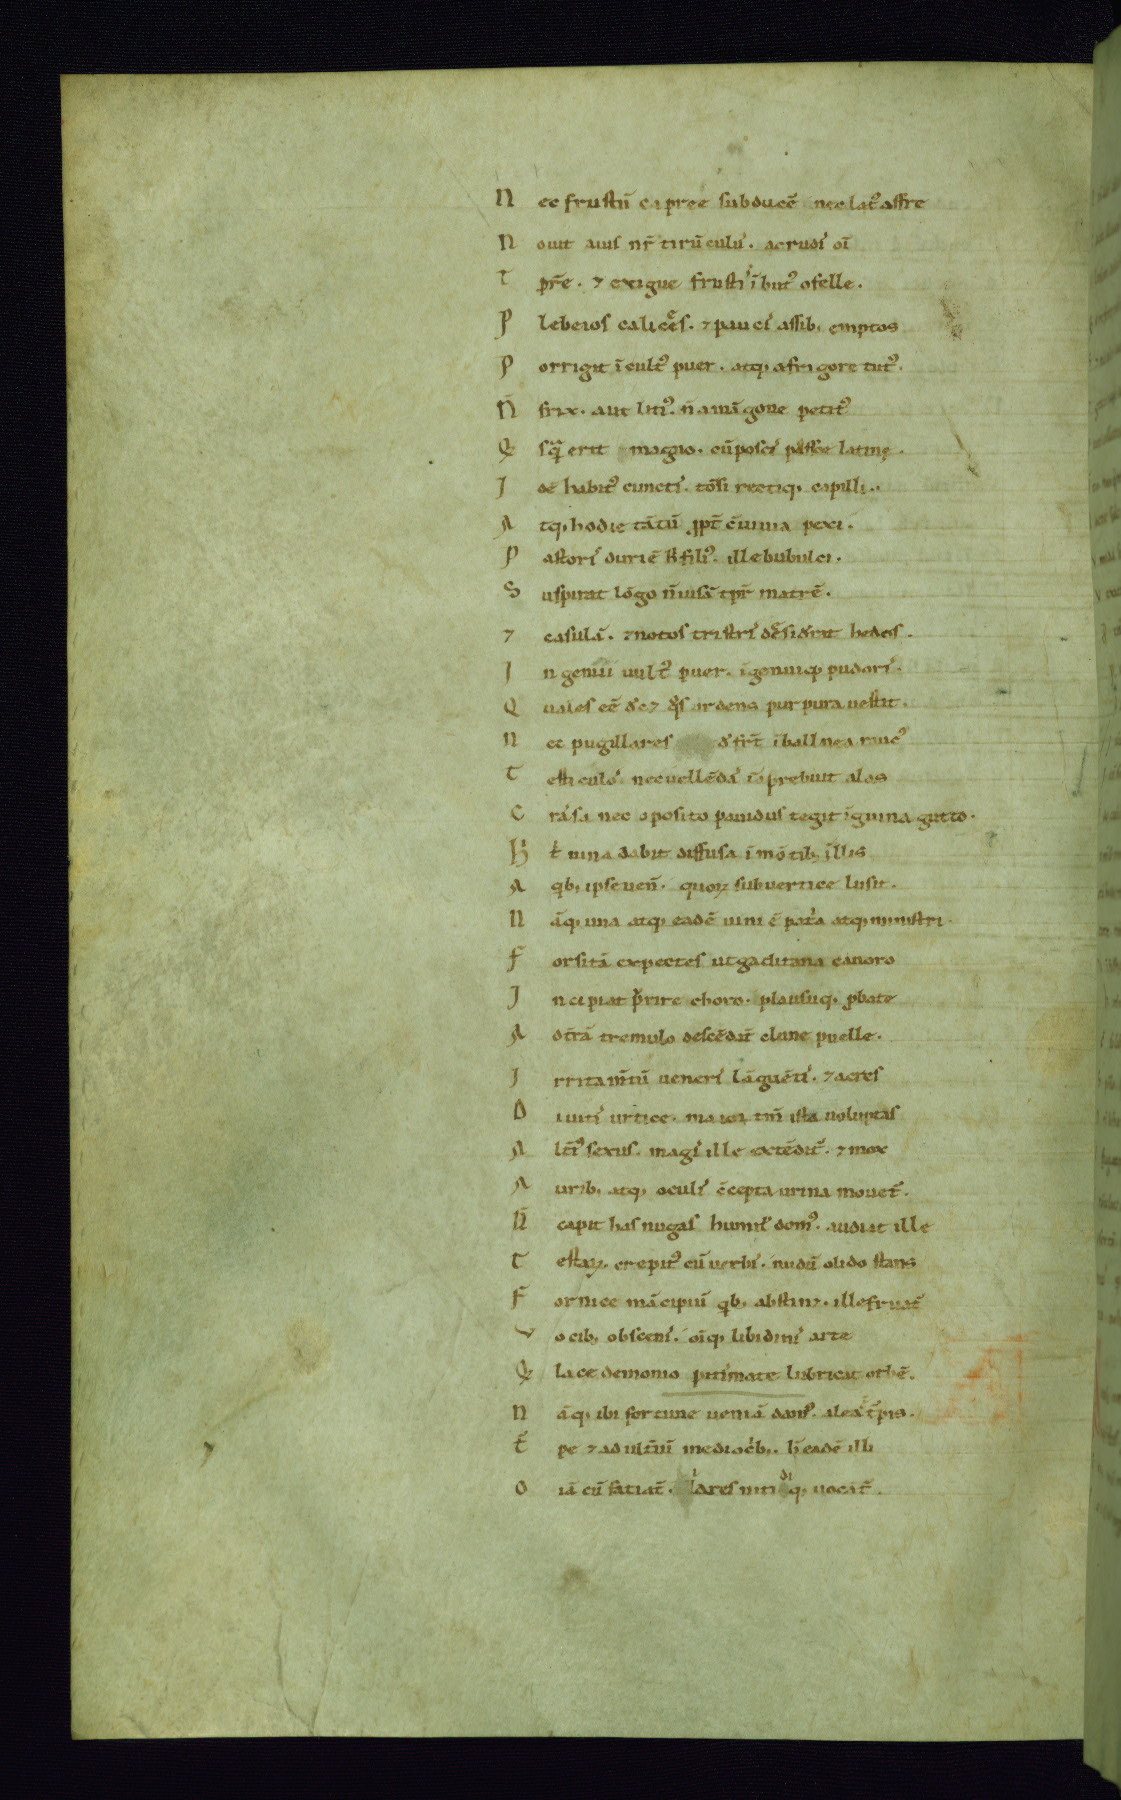 N ec frustū capree subducē nec latꝰ affre
N ouit auis nr̄ tirūculus. ac rudis oī
T pr̄e. ⁊ exigue frustis ībutꝰ ofelle.
P lebeios calices. ⁊ paucis assib; emptos
P orrigit īcultꝰ puer. atq; a frigore tutꝰ.
N̄ frix. aut litiꝰ. n̄ a māgone petitꝰ
Q
I dē habitꝰ cunctis. tōsi rectiq; capilli.
A tq; hodie tātū ꝓpt̄ cōuiuia pexi.
P astoris duri ē h̓ filiꝰ. ille bubulci.
S uspirat lōgo n̄ uisā tp̄r matrē.
⁊ casulā. ⁊ notos tristis desiderat hedos.
I ngenui uultꝰ puer. īgenuiq; pudoris.
Q uales eē dec⁊ q̓s ardens purpura uestit.
N ec pugillares defrt̄ ī balnea raucꝰ
T esticulos nec uellēdas iā prebuit alas
C rassa nec oposito pauidus tegit īguina gutto.
H̓ t̓ uina dabit diffusa ī mōtib; illis
A qb; ipse uen̄. quoꝝ sub uertice lusit.
N āq; una atq; eadē uini ē patria atq; ministri.
F orsitā expectes ut gaditana canoro
I ncipiat prurire choro. plausuq; ꝓbate
A d tr̄ā tremulo descēdāt clune puelle.
I rritam̄tū ueneris lāguētis. ⁊ acres
D iuitis urtice. maior tm̄ ista uoluptas
A lt̄iꝰ sexus. magis ille extēdit᷑. ⁊ mox
A urib; atq; oculis cōcepta urina mouet᷑.
N̄ capit has nugas humilis domꝰ. audiat ille
T estaꝝ. crepitꝰ cū uerbis. nudū olido stans
F ornice mācipiū qb; abstin⁊. ille fruat᷑
V ocib; obscenis. oīq; libidinis arte
Q lacedemonio pitismate lubricat orbē.
N āq; ibi fortune ueniā damꝰ. alea t̓pis.
T̄ pe ⁊ adult̓iū mediocrib;. h̄ eadē illi
O īa cū faciāt. hilares nitidiq; uocāt᷑.